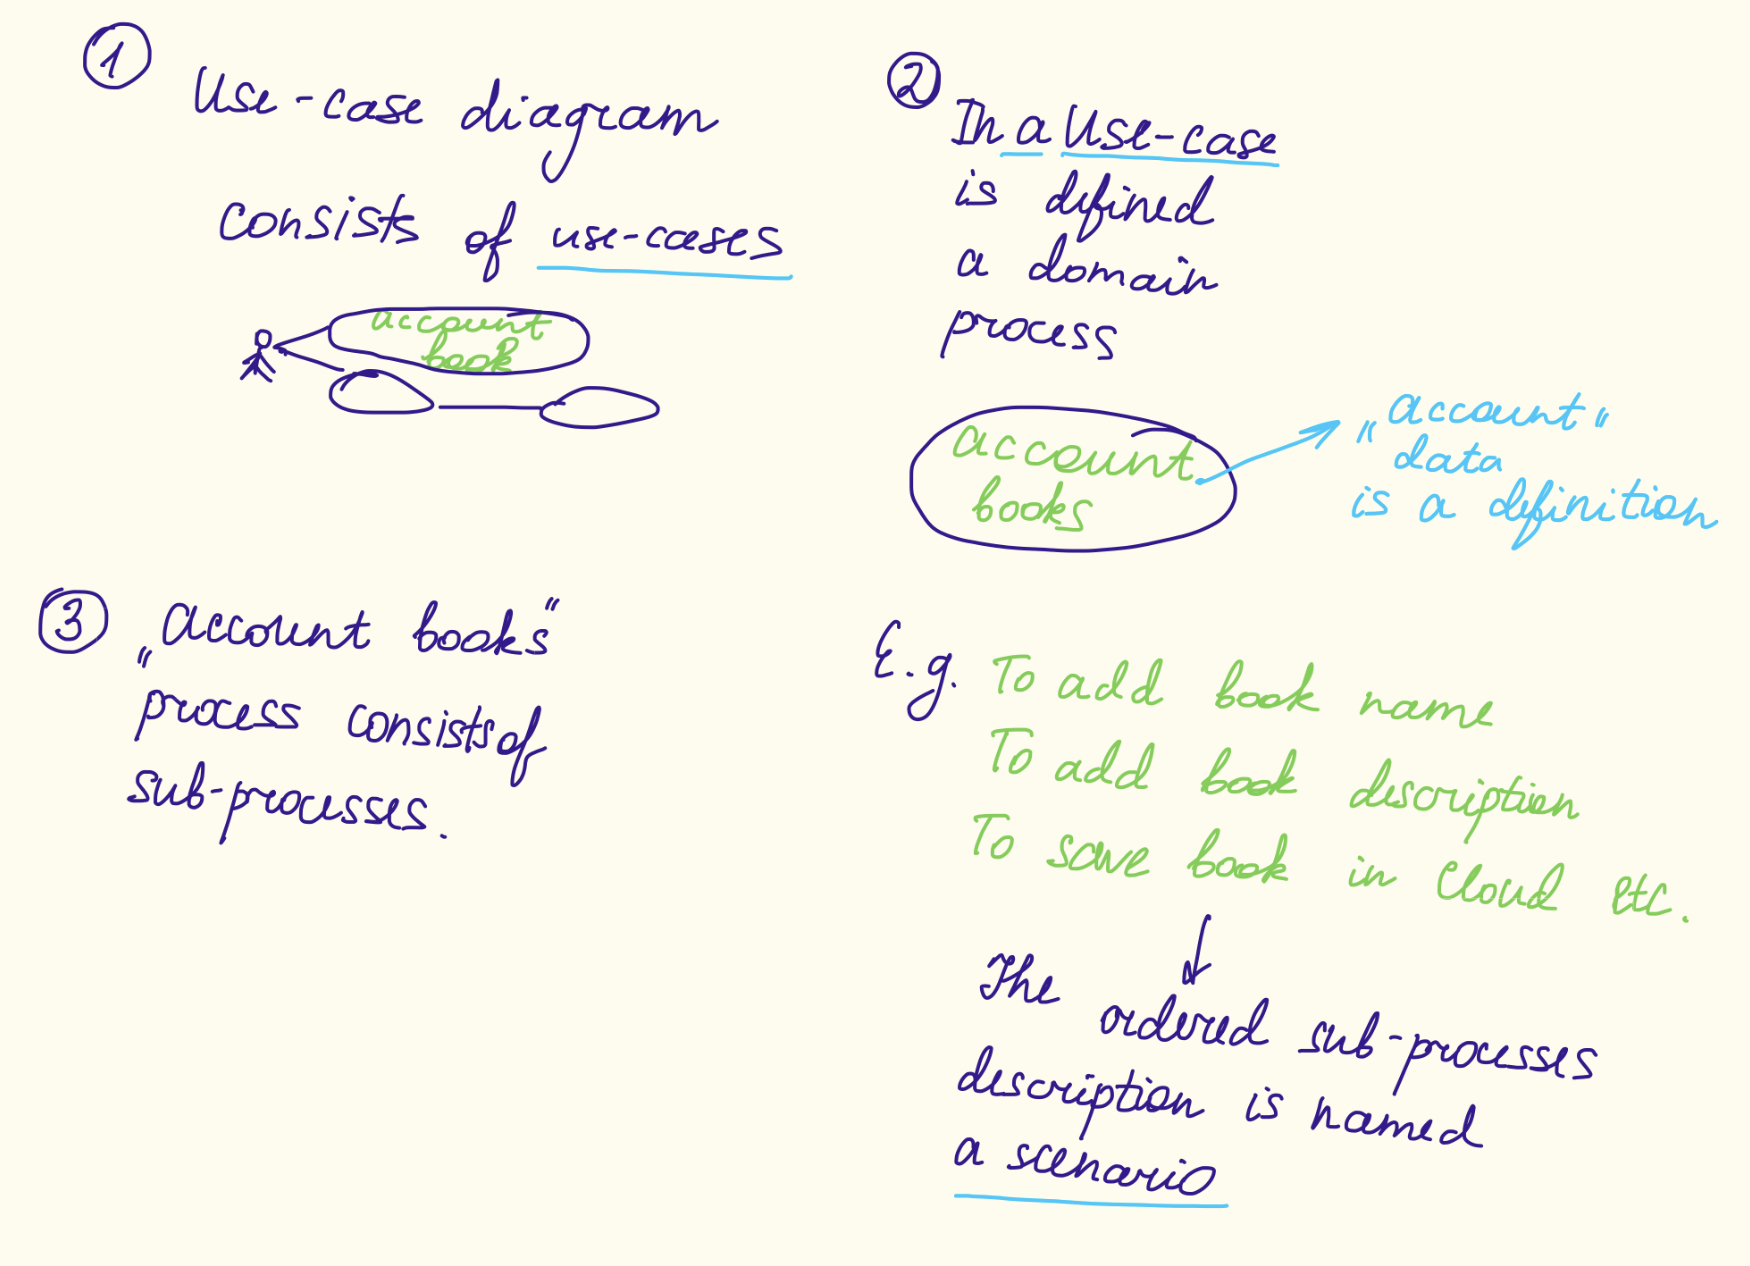 1
Use-case diagram
consists of use-cases
account
book
2
In a Use-case
is defined
a domain
process
account
books
„account“
data
is a definition
3
„Account books“
process consists of
sub-processes.
E.g. To add book name
To add book description
To save book in Cloud etc.
The ordered sub-processes
description is named
a scenario